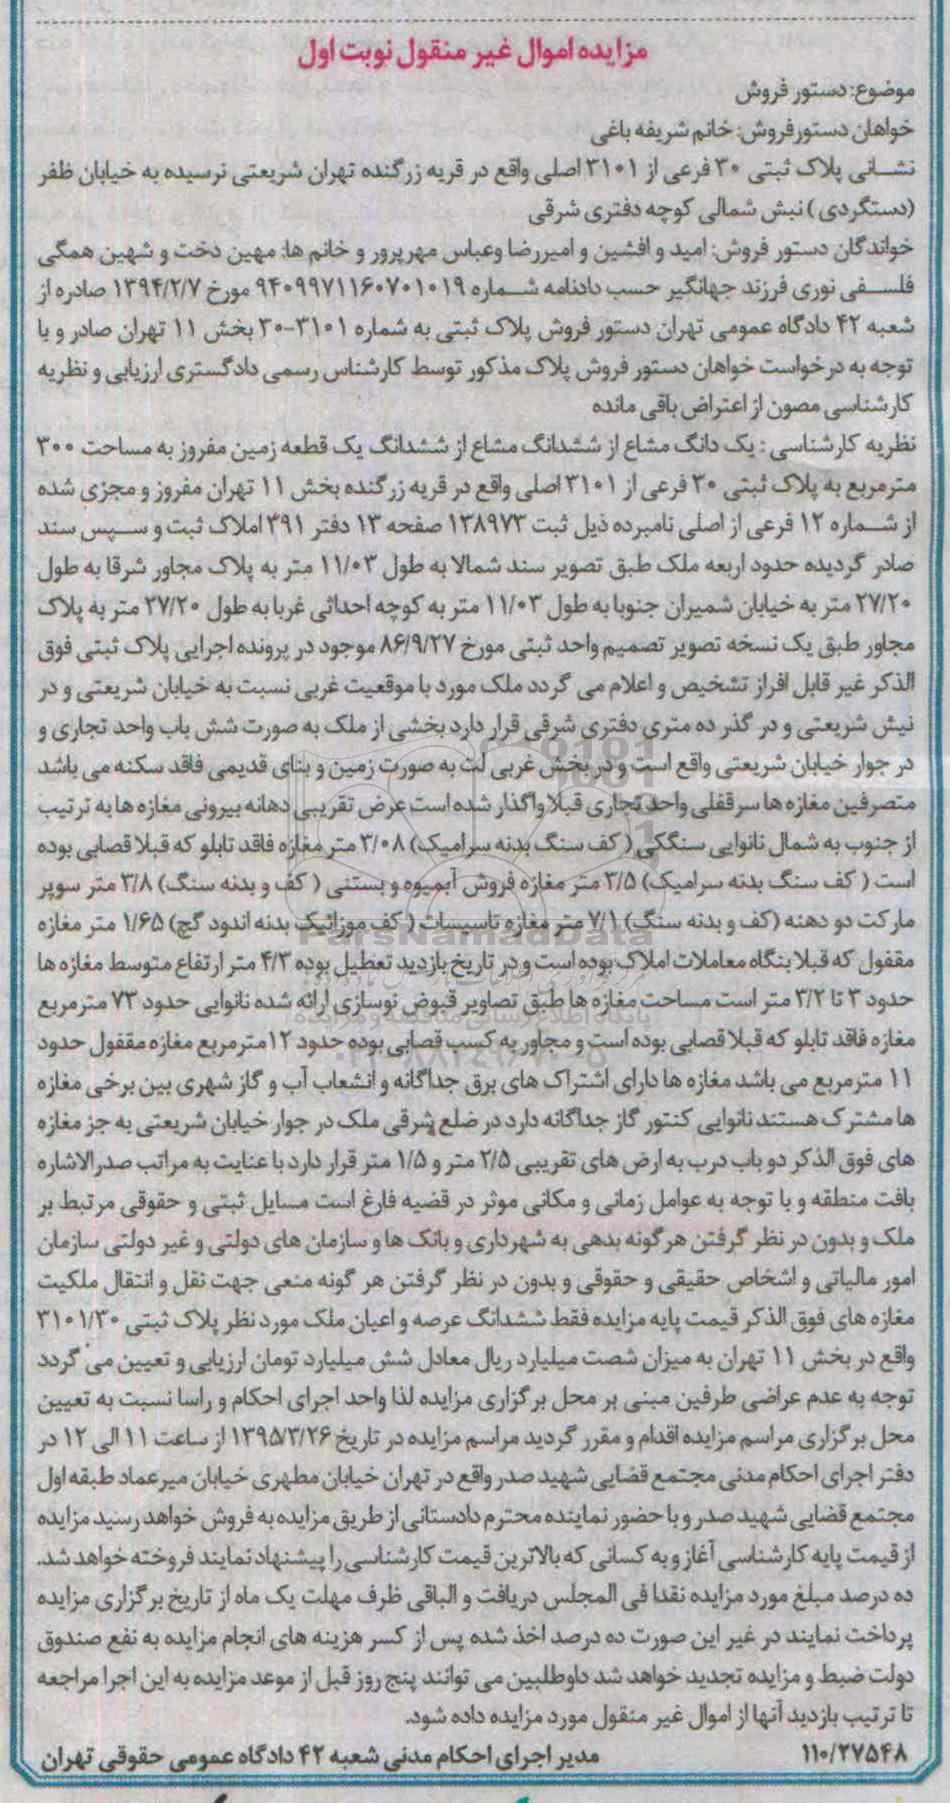 مزایده اموال غیر منقول نوبت اول
موضوع: دستور فروش
خواهان دستورفروش: خانم شریفه باغی
نشـانی پلاک ثبتی ۳۰ فرعی از ۳۱۰۱ اصلی واقع در قریه زرگنده تهران شریعتی نرسیده به خیابان ظفر
(دستگردی) نبش شمالی کوچه دفتری شرقی
خواندگان دستور فروش: امید و افشین و امیررضا وعباس مهرپرور و خانم ها: مهین دخت و شهین همگی
فلسـفی نوری فرزند جهانگیر حسب دادنامه شـماره ۹۴۰۹۹۷۱۱۶۰۷۰۱۰۱۹ مورخ ۱۳۹۴/۲/۷ صادره از
شعبه ۴۲ دادگاه عمومی تهران دستور فروش پلاک ثبتی به شماره ۳۱۰۱-۳۰ بخش ۱۱ تهران صادر و با
توجه به درخواست خواهان دستور فروش پلاک مذکور توسط کارشناس رسمی دادگستری ارزیابی و نظریه
کارشناسی مصون از اعتراض باقی مانده
نظریه کارشناسی : یک دانگ مشاع از ششدانگ مشاع از ششدانگ یک قطعه زمین مفروز به مساحت ۳۰۰
مترمربع به پلاک ثبتی ۳۰ فرعی از ۳۱۰۱ اصلی واقع در قریه زرگنده بخش ۱۱ تهران مفروز و مجزی شده
از شـماره ۱۲ فرعی از اصلی نامبرده ذیل ثبت ۱۳۸۹۷۳ صفحه ۱۳ دفتر ۳۹۱ املاک ثبت و سـپس سند
صادر گردیده حدود اربعه ملک طبق تصویر سند شمالا به طول ۱۱/۰۳ متر به پلاک مجاور شرقا به طول
۲۷/۲۰ متر به خیابان شمیران جنوبا به طول ۱۱/۰۳ متر به کوچه احداثی غربا به طول ۲۷/۲۰ متر به پلاک
مجاور طبق یک نسخه تصویر تصمیم واحد ثبتی مورخ ۸۶/۹/۲۷ موجود در پرونده اجرایی پلاک ثبتی فوق
الذکر غیر قابل افراز تشخیص و اعلام می گردد ملک مورد با موقعیت غربی نسبت به خیابان شریعتی و در
نبش شریعتی و در گذر ده متری دفتری شرقی قرار دارد بخشی از ملک به صورت شش باب واحد تجاری و
در جوار خیابان شریعتی واقع است و در بخش غربی آن به صورت زمین و بنای قدیمی فاقد سکنه می باشد
متصرفین مغازه ها سرقفلی واحد تجاری قبلا واگذار شده است عرض تقریبی دهانه بیرونی مغازه ها به ترتیب
از جنوب به شمال نانوایی سنگکی( کف سنگ بدنه سرامیک) ۳/۰۸ متر مغازه فاقد تابلو که قبلا قصابی بوده
است ( کف سنگ بدنه سرامیک) ۳/۵ متر مغازه فروش آبمیوه و بستنی ( کف و بدنه سنگ) ۳/۸ متر سوپر
مارکت دو دهنه (کف و بدنه سنگ) ۷/۱ متر مغازه تاسیسات ( کف موزائیک بدنه اندود گچ) ۱/۶۵ متر مغازه
مقفول که قبلا بنگاه معاملات املاک بوده است و در تاریخ بازدید تعطیل بوده ۴/۳ متر ارتفاع متوسط مغازه ها
حدود ۳ تا ۳/۲ متر است مساحت مغازه ها طبق تصاویر قبوض نوسازی ارائه شده نانوایی حدود ۷۳ مترمربع
مغازه فاقد تابلو که قبلا قصابی بوده است و مجاور به کسب قصابی بوده حدود ۱۲ مترمربع مغازه مقفول حدود
۱۱ مترمربع می باشد مغازه ها دارای اشتراک های برق جداگانه و انشعاب آب و گاز شهری بین برخی مغازه
ها مشترک هستند نانوایی کنتور گاز جداگانه دارد در ضلع شرقی ملک در جوار خیابان شریعتی به جز مغازه
های فوق الذکر دو باب درب به ارض های تقریبی ۲/۵ متر و ۱/۵ متر قرار دارد با عنایت به مراتب صدرالاشاره
بافت منطقه و با توجه به عوامل زمانی و مکانی موثر در قضیه فارغ است مسایل ثبتی و حقوقی مرتبط بر
ملک و بدون در نظر گرفتن هرگونه بدهی به شهرداری و بانک ها و سازمان های دولتی و غیر دولتی سازمان
امور مالیاتی و اشخاص حقیقی و حقوقی و بدون در نظر گرفتن هر گونه منعی جهت نقل و انتقال ملکیت
مغازه های فوق الذکر قیمت پایه مزایده فقط ششدانگ عرصه و اعیان ملک مورد نظر پلاک ثبتی ۳۱۰۱/۳۰
واقع در بخش ۱۱ تهران به میزان شصت میلیارد ریال معادل شش میلیارد تومان ارزیابی و تعیین می گردد
توجه به عدم عراضی طرفین مبنی بر محل برگزاری مزایده لذا واحد اجرای احکام و راسا نسبت به تعیین
محل برگزاری مراسم مزایده اقدام و مقرر گردید مراسم مزایده در تاریخ ۱۳۹۵/۳/۲۶ از ساعت ۱۱ الی ۱۲ در
دفتر اجرای احکام مدنی مجتمع قضایی شهید صدر واقع در تهران خیابان مطهری خیابان میرعماد طبقه اول
مجتمع قضایی شهید صدر و با حضور نماینده محترم دادستانی از طریق مزایده به فروش خواهد رسید مزایده
از قیمت پایه کارشناسی آغاز و به کسانی که بالاترین قیمت کارشناسی را پیشنهاد نمایند فروخته خواهد شد.
ده درصد مبلغ مورد مزایده نقدا فی المجلس دریافت و الباقی ظرف مهلت یک ماه از تاریخ برگزاری مزایده
پرداخت نمایند در غیر این صورت ده درصد اخذ شده پس از کسر هزینه های انجام مزایده به نفع صندوق
دولت ضبط و مزایده تجدید خواهد شد داوطلبین می توانند پنج روز قبل از موعد مزایده به این اجرا مراجعه
تا ترتیب بازدید آنها از اموال غیر منقول مورد مزایده داده شود.
۱۱۰/۲۷۵۴۸ مدیر اجرای احکام مدنی شعبه ۴۲ دادگاه عمومی حقوقی تهران
ParsNamadData